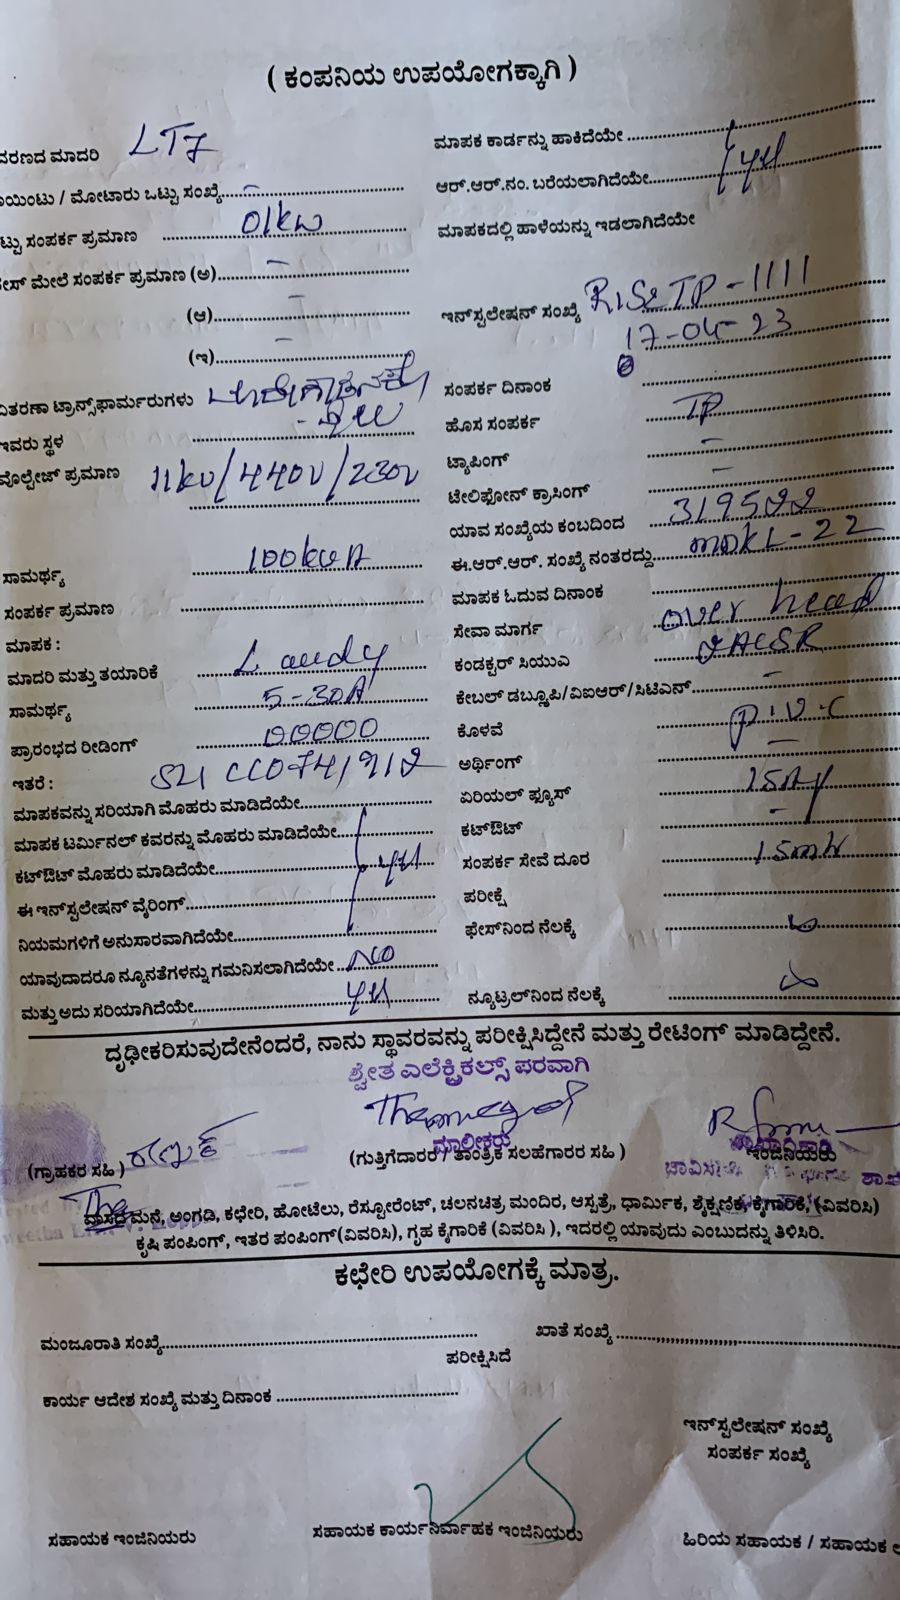 ( ಕಂಪನಿಯ ಉಪಯೋಗಕ್ಕಾಗಿ )
ವರಣದ ಮಾದರಿ LT7
ಾಯಿಂಟು / ಮೋಟಾರು ಒಟ್ಟು ಸಂಖ್ಯೆ -
ಟ್ಟು ಸಂಪರ್ಕ ಪ್ರಮಾಣ 01kw
ೇಸ್ ಮೇಲೆ ಸಂಪರ್ಕ ಪ್ರಮಾಣ (ಅ) -
(ಆ) -
(ಇ) -
ವಿತರಣಾ ಟ್ರಾನ್ಸ್‌ಫಾರ್ಮರುಗಳು
ಇವರು ಸ್ಥಳ
ವೊಲ್ಟೇಜ್ ಪ್ರಮಾಣ 11kv/440v/230v
ಸಾಮರ್ಥ್ಯ 100kVA
ಸಂಪರ್ಕ ಪ್ರಮಾಣ
ಮಾಪಕ :
ಮಾದರಿ ಮತ್ತು ತಯಾರಿಕೆ
ಸಾಮರ್ಥ್ಯ 5-30A
ಪ್ರಾರಂಭದ ರೀಡಿಂಗ್ 00000
ಇತರೆ :
ಮಾಪಕವನ್ನು ಸರಿಯಾಗಿ ಮೊಹರು ಮಾಡಿದೆಯೇ
ಮಾಪಕ ಟರ್ಮಿನಲ್ ಕವರನ್ನು ಮೊಹರು ಮಾಡಿದೆಯೇ
ಕಟ್‌ಔಟ್ ಮೊಹರು ಮಾಡಿದೆಯೇ yes
ಈ ಇನ್‌ಸ್ಟಲೇಷನ್ ವೈರಿಂಗ್
ನಿಯಮಗಳಿಗೆ ಅನುಸಾರವಾಗಿದೆಯೇ
ಯಾವುದಾದರೂ ನ್ಯೂನತೆಗಳನ್ನು ಗಮನಿಸಲಾಗಿದೆಯೇ NO
ಮತ್ತು ಅದು ಸರಿಯಾಗಿದೆಯೇ yes
ಮಾಪಕ ಕಾರ್ಡನ್ನು ಹಾಕಿದೆಯೇ
ಆರ್.ಆರ್.ನಂ. ಬರೆಯಲಾಗಿದೆಯೇ yes
ಮಾಪಕದಲ್ಲಿ ಹಾಳೆಯನ್ನು ಇಡಲಾಗಿದೆಯೇ
ಇನ್‌ಸ್ಟಲೇಷನ್ ಸಂಖ್ಯೆ TP-1111
17-04-23
ಸಂಪರ್ಕ ದಿನಾಂಕ
ಹೊಸ ಸಂಪರ್ಕ TP
ಟ್ಯಾಪಿಂಗ್ -
ಟೇಲಿಫೋನ್ ಕ್ರಾಸಿಂಗ್ -
ಯಾವ ಸಂಖ್ಯೆಯ ಕಂಬದಿಂದ
ಈ.ಆರ್.ಆರ್. ಸಂಖ್ಯೆ ನಂತರದ್ದು MDKL-22
ಮಾಪಕ ಓದುವ ದಿನಾಂಕ
ಸೇವಾ ಮಾರ್ಗ over head
ಕಂಡಕ್ಟರ್ ಸಿಯುಎ
ಕೇಬಲ್ ಡಬ್ಲೂಪಿ/ವಿಐಆರ್/ಸಿಟಿಎನ್ -
ಕೊಳವೆ P.V.C
ಅರ್ಥಿಂಗ್ -
ಏರಿಯಲ್ ಫ್ಯೂಸ್
ಕಟ್‌ಔಟ್ -
ಸಂಪರ್ಕ ಸೇವೆ ದೂರ
ಪರೀಕ್ಷೆ
ಫೇಸ್‌ನಿಂದ ನೆಲಕ್ಕೆ
ನ್ಯೂಟ್ರಲ್‌ನಿಂದ ನೆಲಕ್ಕೆ
ದೃಢೀಕರಿಸುವುದೇನೆಂದರೆ, ನಾನು ಸ್ಥಾವರವನ್ನು ಪರೀಕ್ಷಿಸಿದ್ದೇನೆ ಮತ್ತು ರೇಟಿಂಗ್ ಮಾಡಿದ್ದೇನೆ.
ಶ್ವೇತ ಎಲೆಕ್ಟ್ರಿಕಲ್ಸ್ ಪರವಾಗಿ
ಮಾಲೀಕರು
(ಗ್ರಾಹಕರ ಸಹಿ) (ಗುತ್ತಿಗೆದಾರರ / ತಾಂತ್ರಿಕ ಸಲಹೆಗಾರರ ಸಹಿ ) ಇಂಜಿನಿಯರು
ವಾಸದ ಮನೆ, ಅಂಗಡಿ, ಕಛೇರಿ, ಹೋಟೆಲು, ರೆಸ್ಟೋರೆಂಟ್, ಚಲನಚಿತ್ರ ಮಂದಿರ, ಆಸ್ಪತ್ರೆ, ಧಾರ್ಮಿಕ, ಶೈಕ್ಷಣಿಕ, ಕೈಗಾರಿಕೆ, (ವಿವರಿಸಿ)
ಕೃಷಿ ಪಂಪಿಂಗ್, ಇತರ ಪಂಪಿಂಗ್ (ವಿವರಿಸಿ), ಗೃಹ ಕೈಗಾರಿಕೆ (ವಿವರಿಸಿ ), ಇದರಲ್ಲಿ ಯಾವುದು ಎಂಬುದನ್ನು ತಿಳಿಸಿರಿ.
ಕಛೇರಿ ಉಪಯೋಗಕ್ಕೆ ಮಾತ್ರ.
ಮಂಜೂರಾತಿ ಸಂಖ್ಯೆ ಖಾತೆ ಸಂಖ್ಯೆ
ಪರೀಕ್ಷಿಸಿದೆ
ಕಾರ್ಯ ಆದೇಶ ಸಂಖ್ಯೆ ಮತ್ತು ದಿನಾಂಕ
ಇನ್‌ಸ್ಟಲೇಷನ್ ಸಂಖ್ಯೆ
ಸಂಪರ್ಕ ಸಂಖ್ಯೆ
ಸಹಾಯಕ ಇಂಜಿನಿಯರು ಸಹಾಯಕ ಕಾರ್ಯನಿರ್ವಾಹಕ ಇಂಜಿನಿಯರು ಹಿರಿಯ ಸಹಾಯಕ / ಸಹಾಯಕ